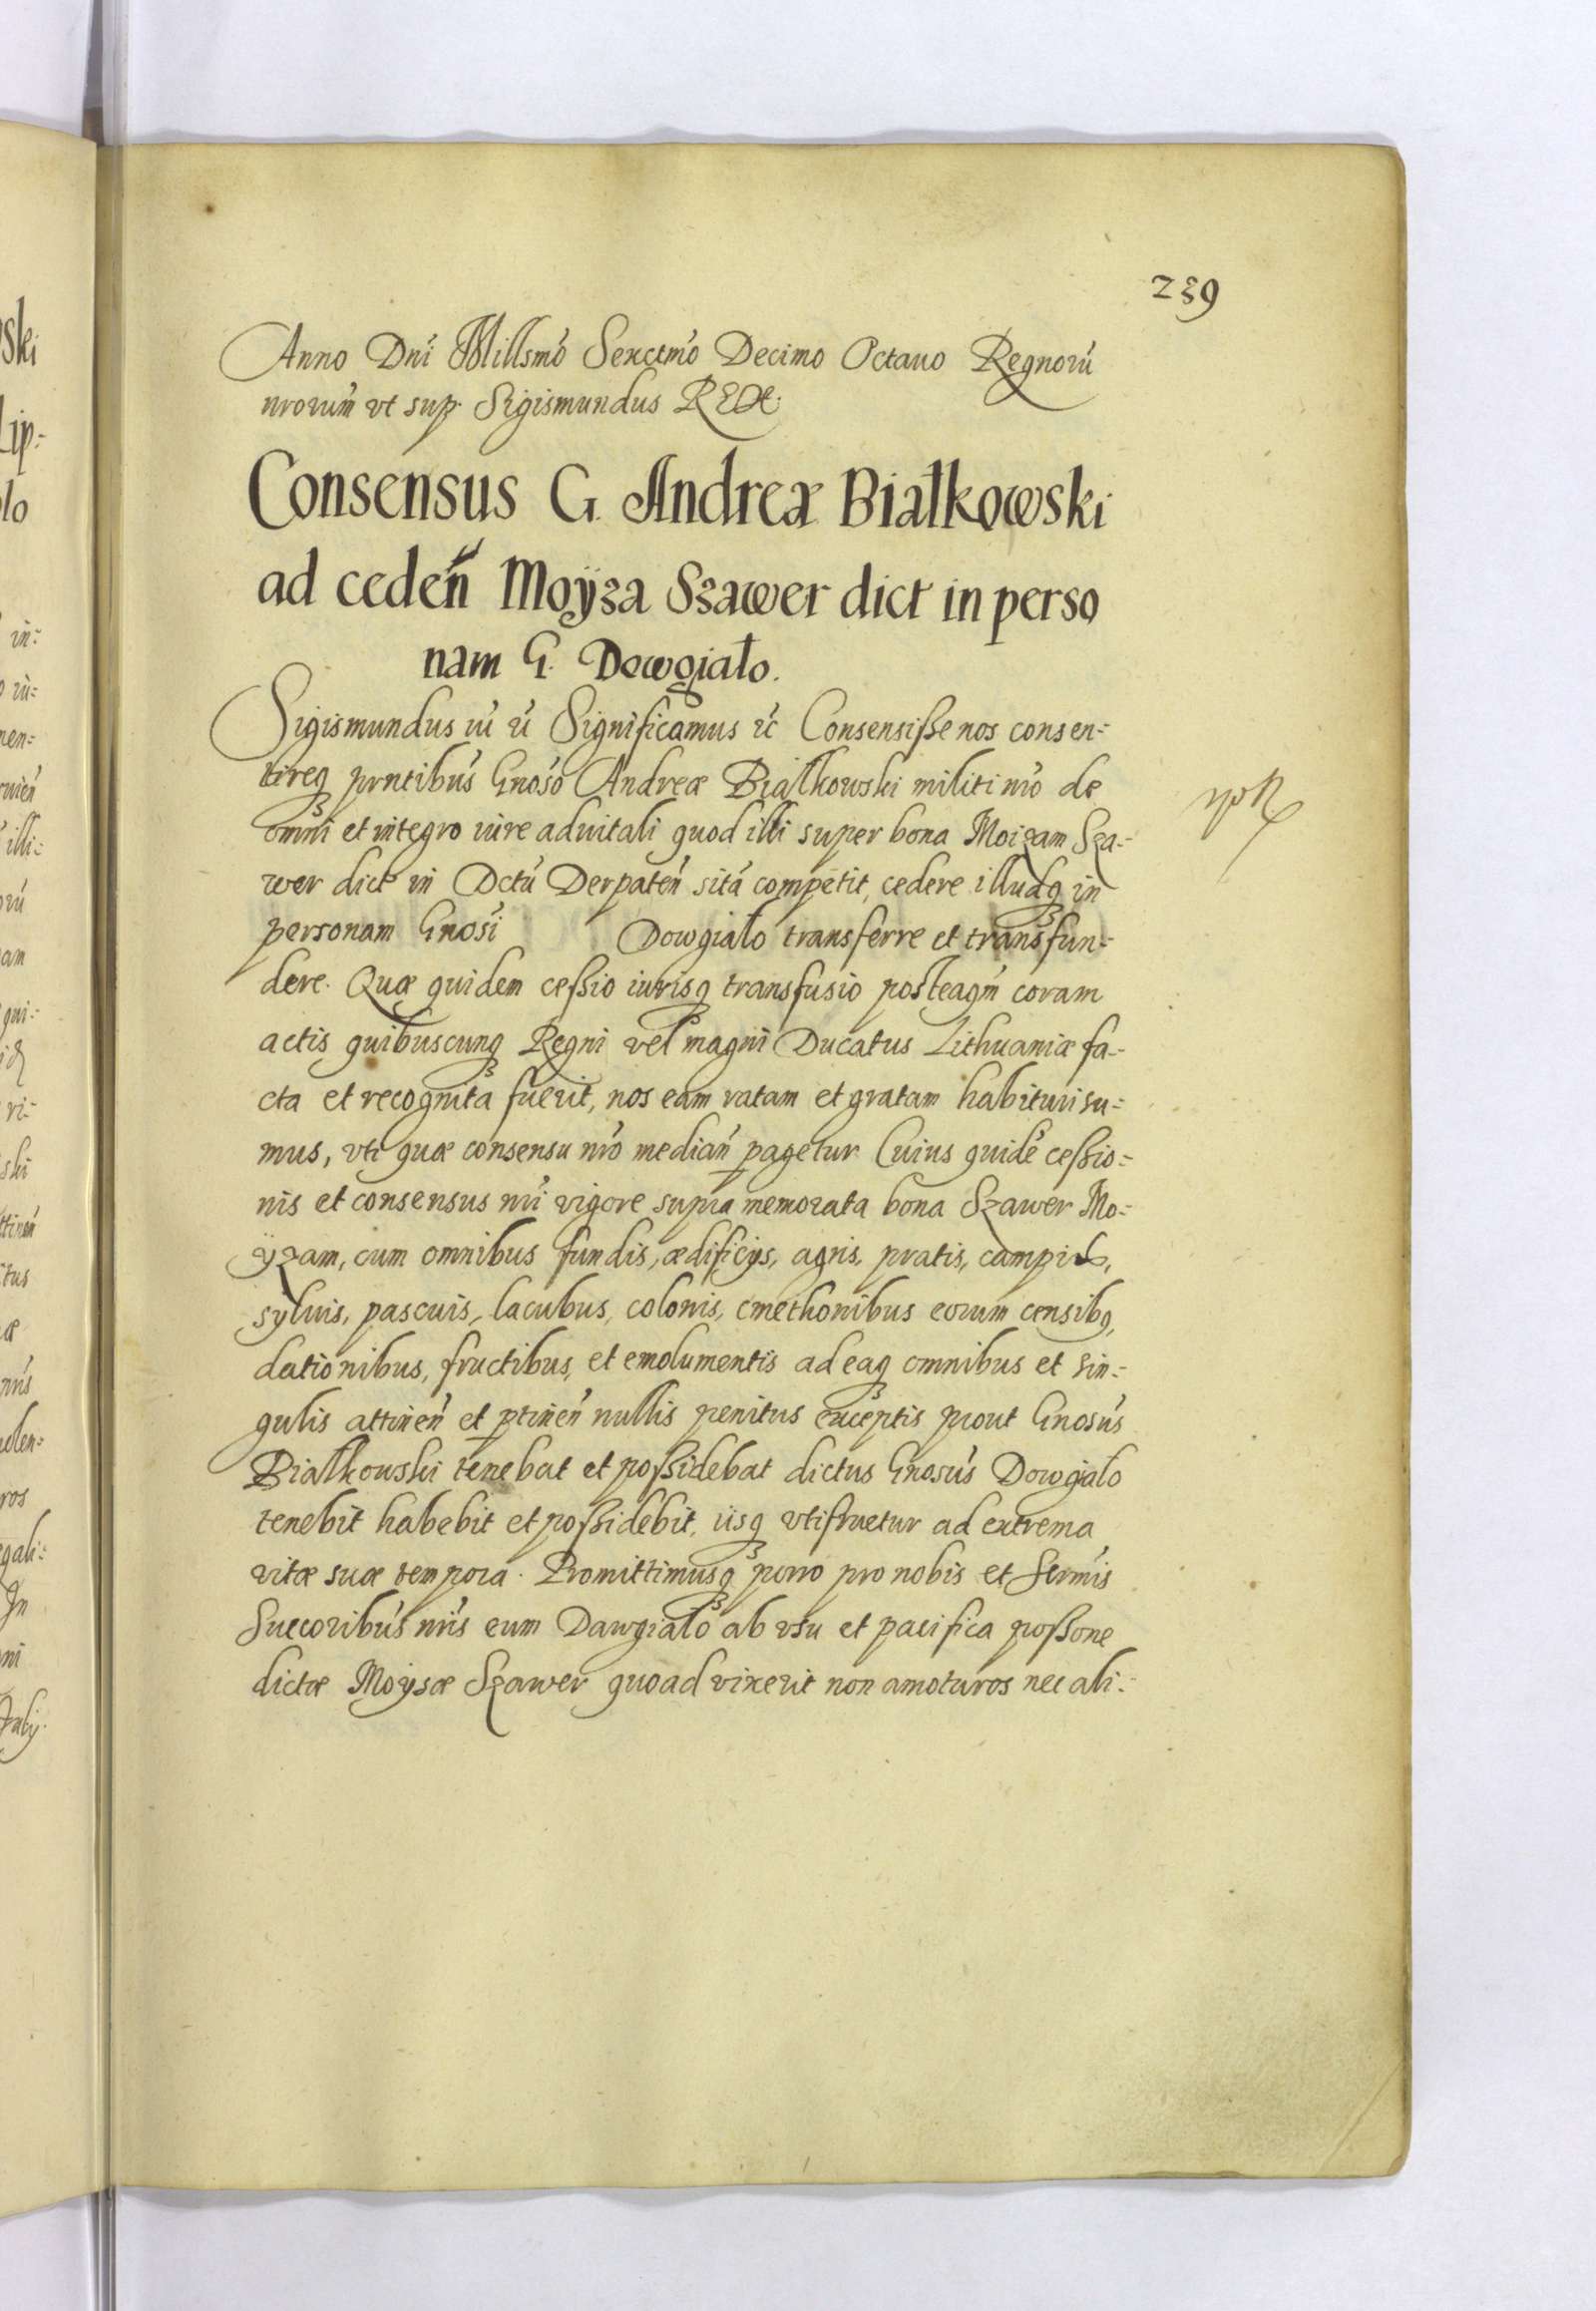 239
Anno Dnï Millsmo Sexctmo Decimo Octauo Regnorú
nrorum vt sup. Sigismundus REX.
Consensus G. Andreæ Białkowski
ad ceden̄ Moÿza Szawer dict in perso
nam G. Dowgiało.
Sigismundus iii ꝛc Significamus ꝛc Consensiſse nos consen=
tireqꝫ pn̄tibus Gnoso Andreæ Białkowski militi nr̄o de
omni et integro iure aduitali quod illi super bona Moizam Sza=
wer dict in Dctú Derpateń sitá competit, cedere illudqꝫ in
personam Gnosi Dowgiało transferre et transfun=
dere. Quæ quidem ceſsio iurisqꝫ transfusio posteaqm̄ coram
actis quibuscunqꝫ Regni vel magni Ducatus Lithuaniæ fa=
cta et recognita fuerit, nos eam ratam et gratam habituri su=
mus, vti quæ consensu nr̄o median̄ pagetur Cuius quidē ceſsio=
nis et consensus nr̄i vigore supra memorata bona Szawer Mo=
ÿzam, cum omnibus fundis, ædificijs, agris, pratis, campis,
syluis, pascuis, lacubus, colonis, cmethonibus eorum censibꝫ,
dationibus, fructibus, et emolumentis ad eaqꝫ omnibus et sin=
gulis attineń et ꝑtineń nullis penitus exceptis prout Gnosus
Białkowski tenebat et poſsidebat dictus Gnosus Dowgiało
tenebit habebit et poſsidebit, iisqꝫ vtifruetur ad extrema
vitæ suæ tempora. Promittimusqꝫ porro pro nobis et Sermis
Succoribus nr̄is eum Dawgiało ab vsu et pacifica poſsone
dictæ Moysæ Szawer quoad vixerit non amoturos nec ali=